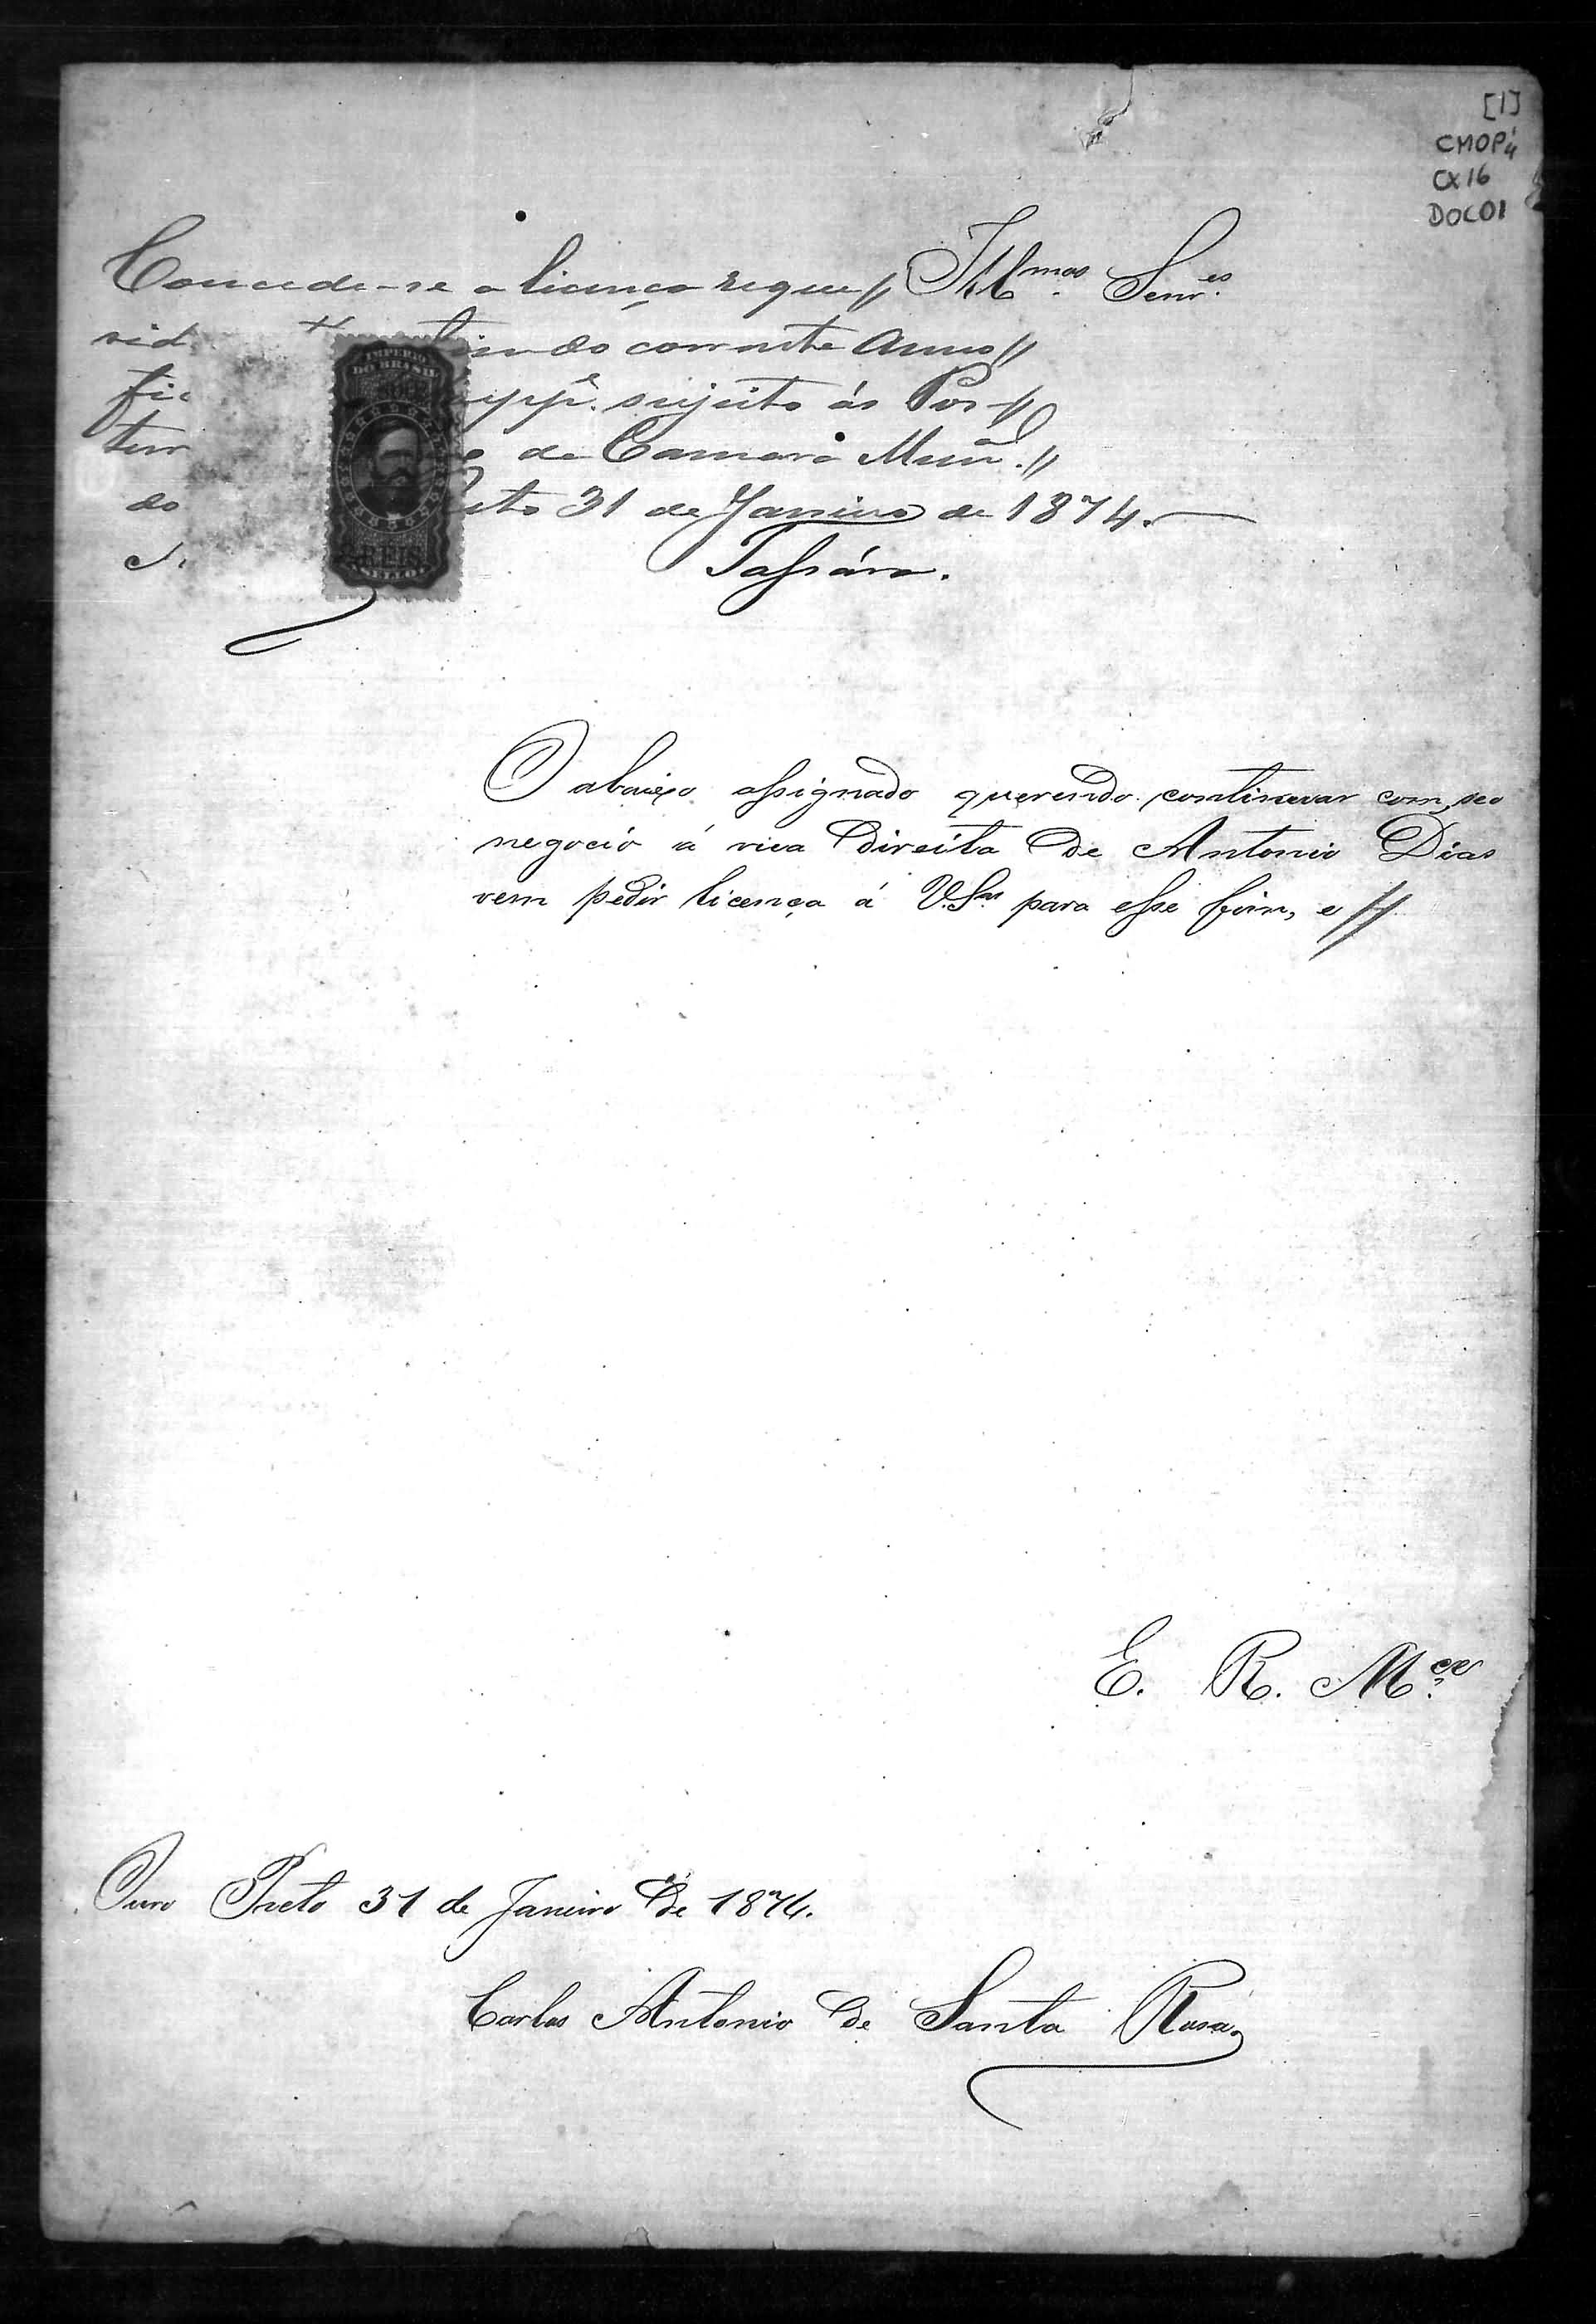 [1]
CMOP4
CX16
DOC01
Illmos. Senres.
Concede-se a licença reque//
rid do corrente Anno//
fic suppe. sujeito ás Pos//
tur da Camara Mun.//
do eto 31 de Janeiro de 1874.
Tassára.
IMPERIO
DO BRASIL
REIS
SELLO
O abaixo assignado querendo continuar com seo
negocio á rua direita de Antonio Dias
vem pedir licença á V.Sas para esse fim, e //
E. R. Mce.
Ouro Preto 31 de Janeiro de 1874.
Carlos Antonio de Santa Rosa